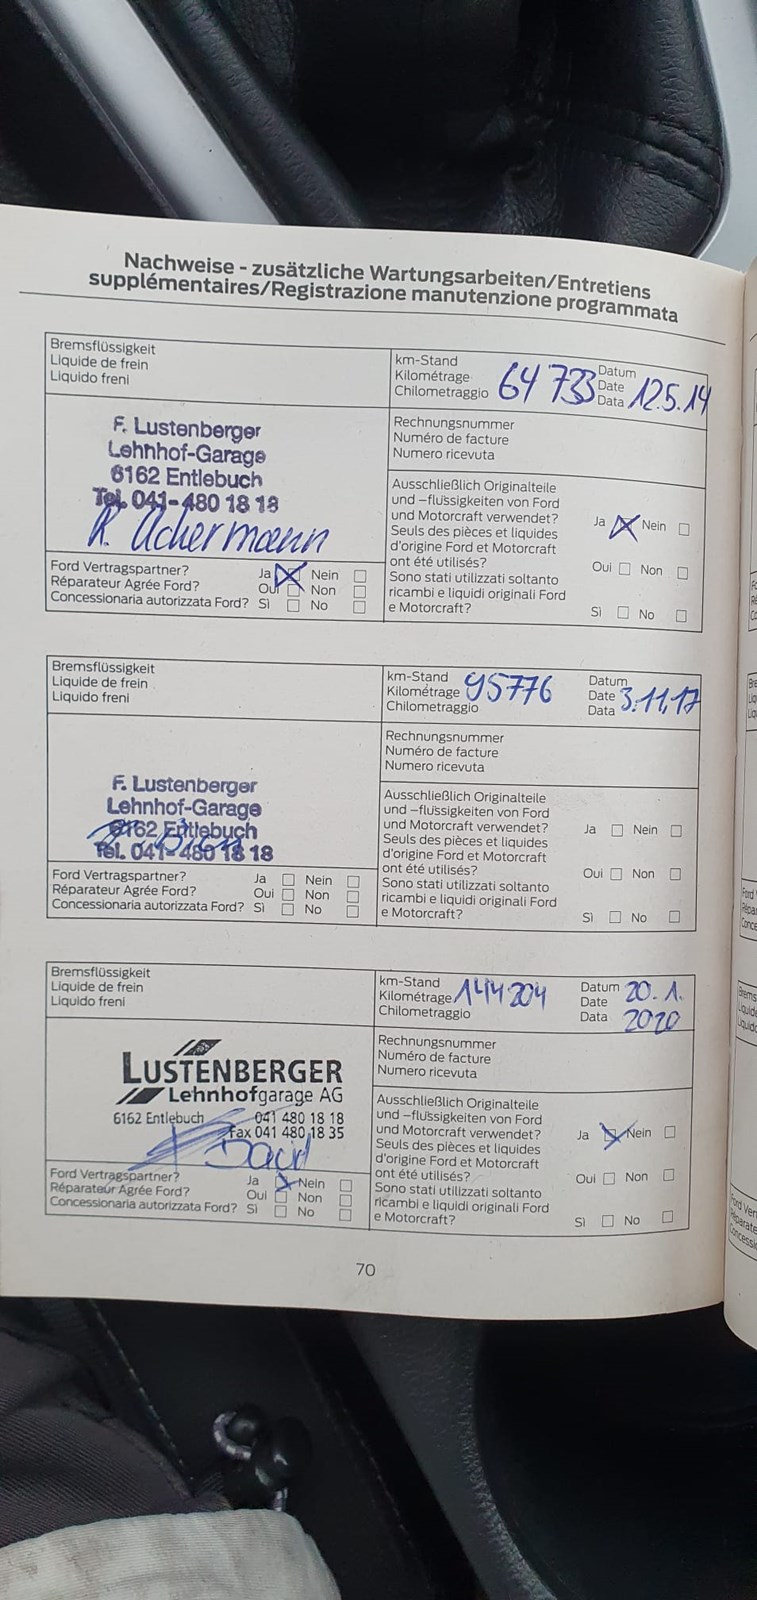 Nachweise - zusätzliche Wartungsarbeiten/Entretiens
supplémentaires/Registrazione manutenzione programmata
Bremsflüssigkeit
Liquide de frein
Liquido freni
km-Stand
Kilométrage
Chilometraggio
64 733
Datum
Date
Data
12.5.14
F. Lustenberger
Lehnhof-Garage
6162 Entlebuch
Tel. 041-480 18 18
R. Achermann
Rechnungsnummer
Numéro de facture
Numero ricevuta
Ausschließlich Originalteile
und –flüssigkeiten von Ford
und Motorcraft verwendet?
Seuls des pièces et liquides
d'origine Ford et Motorcraft
ont été utilisés?
Sono stati utilizzati soltanto
ricambi e liquidi originali Ford
e Motorcraft?
Ja Nein
Oui Non
Sì No
Ford Vertragspartner? Ja Nein
Réparateur Agrée Ford? Oui Non
Concessionaria autorizzata Ford? Sì No
Bremsflüssigkeit
Liquide de frein
Liquido freni
km-Stand
Kilométrage
Chilometraggio
95776
Datum
Date
Data
3.11.17
F. Lustenberger
Lehnhof-Garage
6162 Entlebuch
Tel. 041-480 18 18
Rechnungsnummer
Numéro de facture
Numero ricevuta
Ausschließlich Originalteile
und –flüssigkeiten von Ford
und Motorcraft verwendet?
Seuls des pièces et liquides
d'origine Ford et Motorcraft
ont été utilisés?
Sono stati utilizzati soltanto
ricambi e liquidi originali Ford
e Motorcraft?
Ja Nein
Oui Non
Sì No
Ford Vertragspartner? Ja Nein
Réparateur Agrée Ford? Oui Non
Concessionaria autorizzata Ford? Sì No
Bremsflüssigkeit
Liquide de frein
Liquido freni
km-Stand
Kilométrage
Chilometraggio
144204
Datum
Date
Data
20.1.
2020
LUSTENBERGER
Lehnhofgarage AG
6162 Entlebuch 041 480 18 18
Fax 041 480 18 35
Rechnungsnummer
Numéro de facture
Numero ricevuta
Ausschließlich Originalteile
und –flüssigkeiten von Ford
und Motorcraft verwendet?
Seuls des pièces et liquides
d'origine Ford et Motorcraft
ont été utilisés?
Sono stati utilizzati soltanto
ricambi e liquidi originali Ford
e Motorcraft?
Ja Nein
Oui Non
Sì No
Ford Vertragspartner? Ja Nein
Réparateur Agrée Ford? Oui Non
Concessionaria autorizzata Ford? Sì No
70